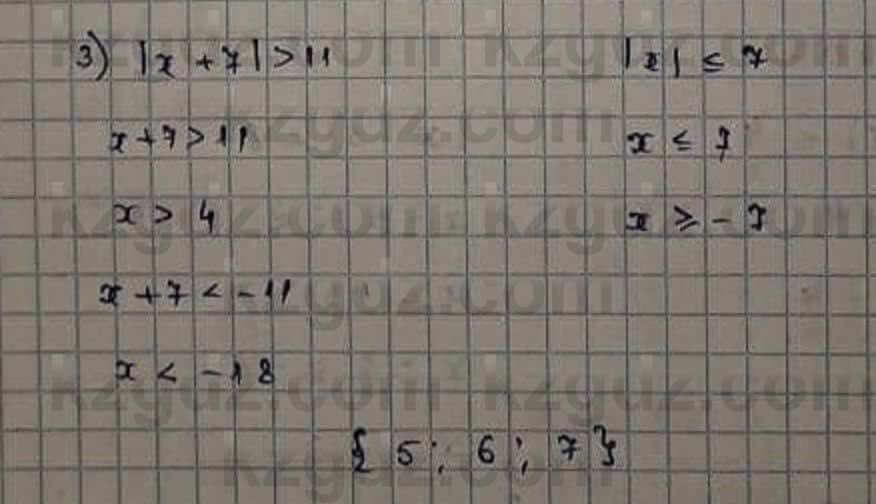 3) |x + 7| > 11
|x| ≤ 7
x + 7 > 11
x ≤ 7
x > 4
x ≥ - 7
x + 7 < - 11
x < - 18
{ 5 ; 6 ; 7 }
kzguz.com